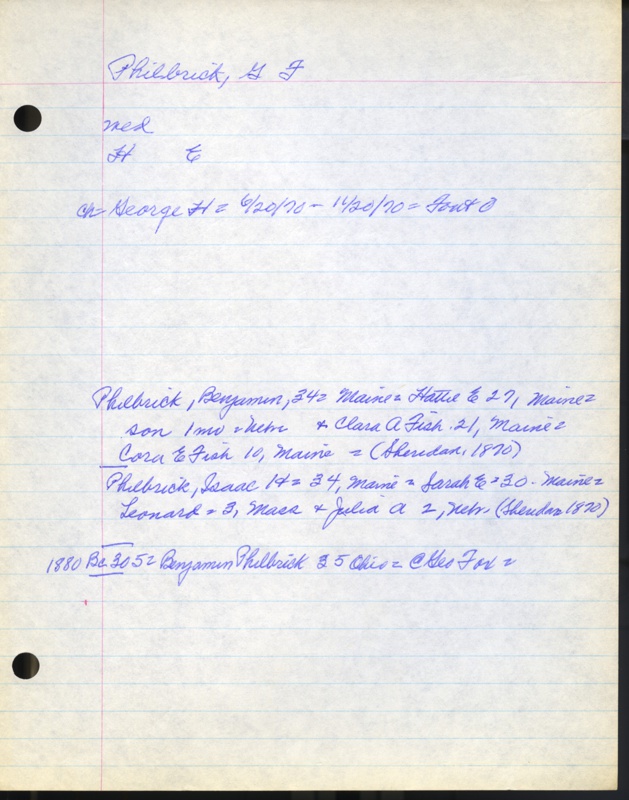 Philbrick, G F
med
H E
ch= George H = 6/20/70 - 11/20/70 =
Philbrick, Benjamin, 34= Maine= Hattie E 27, Maine=
son 1mo = Nebr & Clara A Fish 21, Maine=
Cora E Fish 10, Maine = (Sheridan, 1870)
Philbrick, Isaac H = 34, Maine = Sarah E = 30 - Maine=
Leonard = 3, Mass & Julia A 2, Nebr. (Sheridan 1870)
1880 305= Benjamin Philbrick 35 Ohio = Geo Fox =